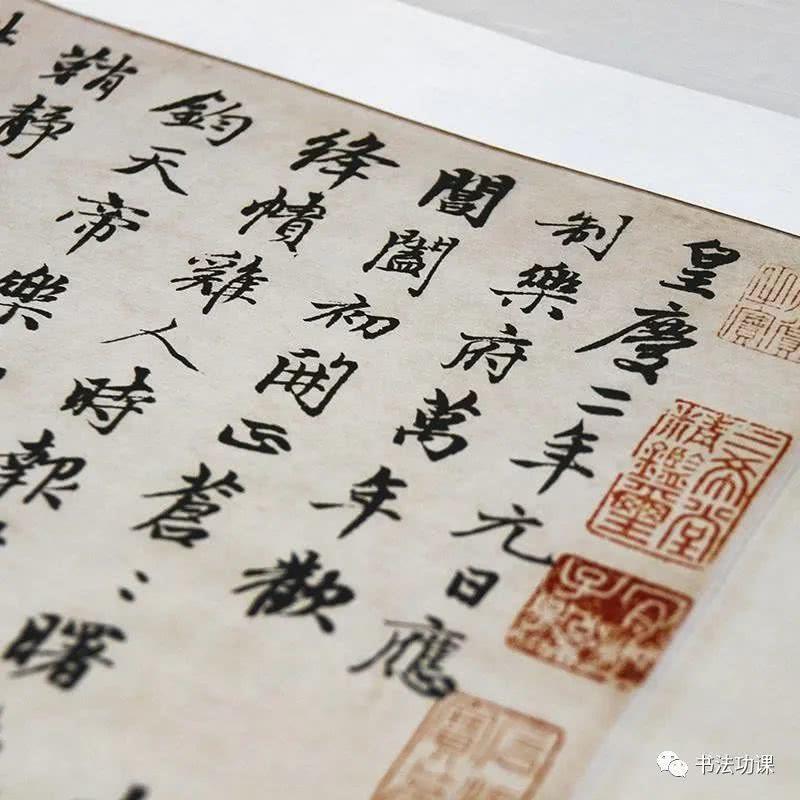 皇慶二年元日應
制樂府萬年歡
閶闔初開正蒼〻曙
絳幘雞人時報
鈞天帝樂
鞘靜
三希堂精鑑璽
宜子孫
书法功课